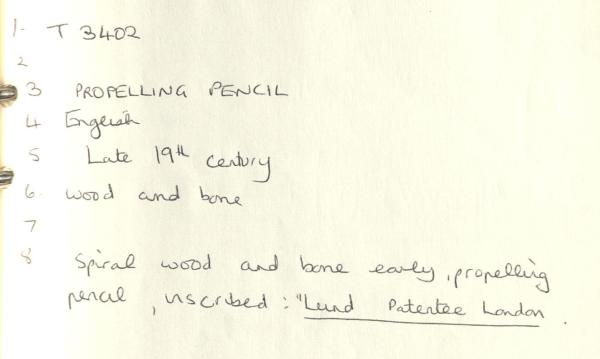 1. T 3402
2
3 PROPELLING PENCIL
4 English
5 Late 19th century
6. wood and bone
7
8 Spiral wood and bone early, propelling
pencil, inscribed : "Lund Patentee London.